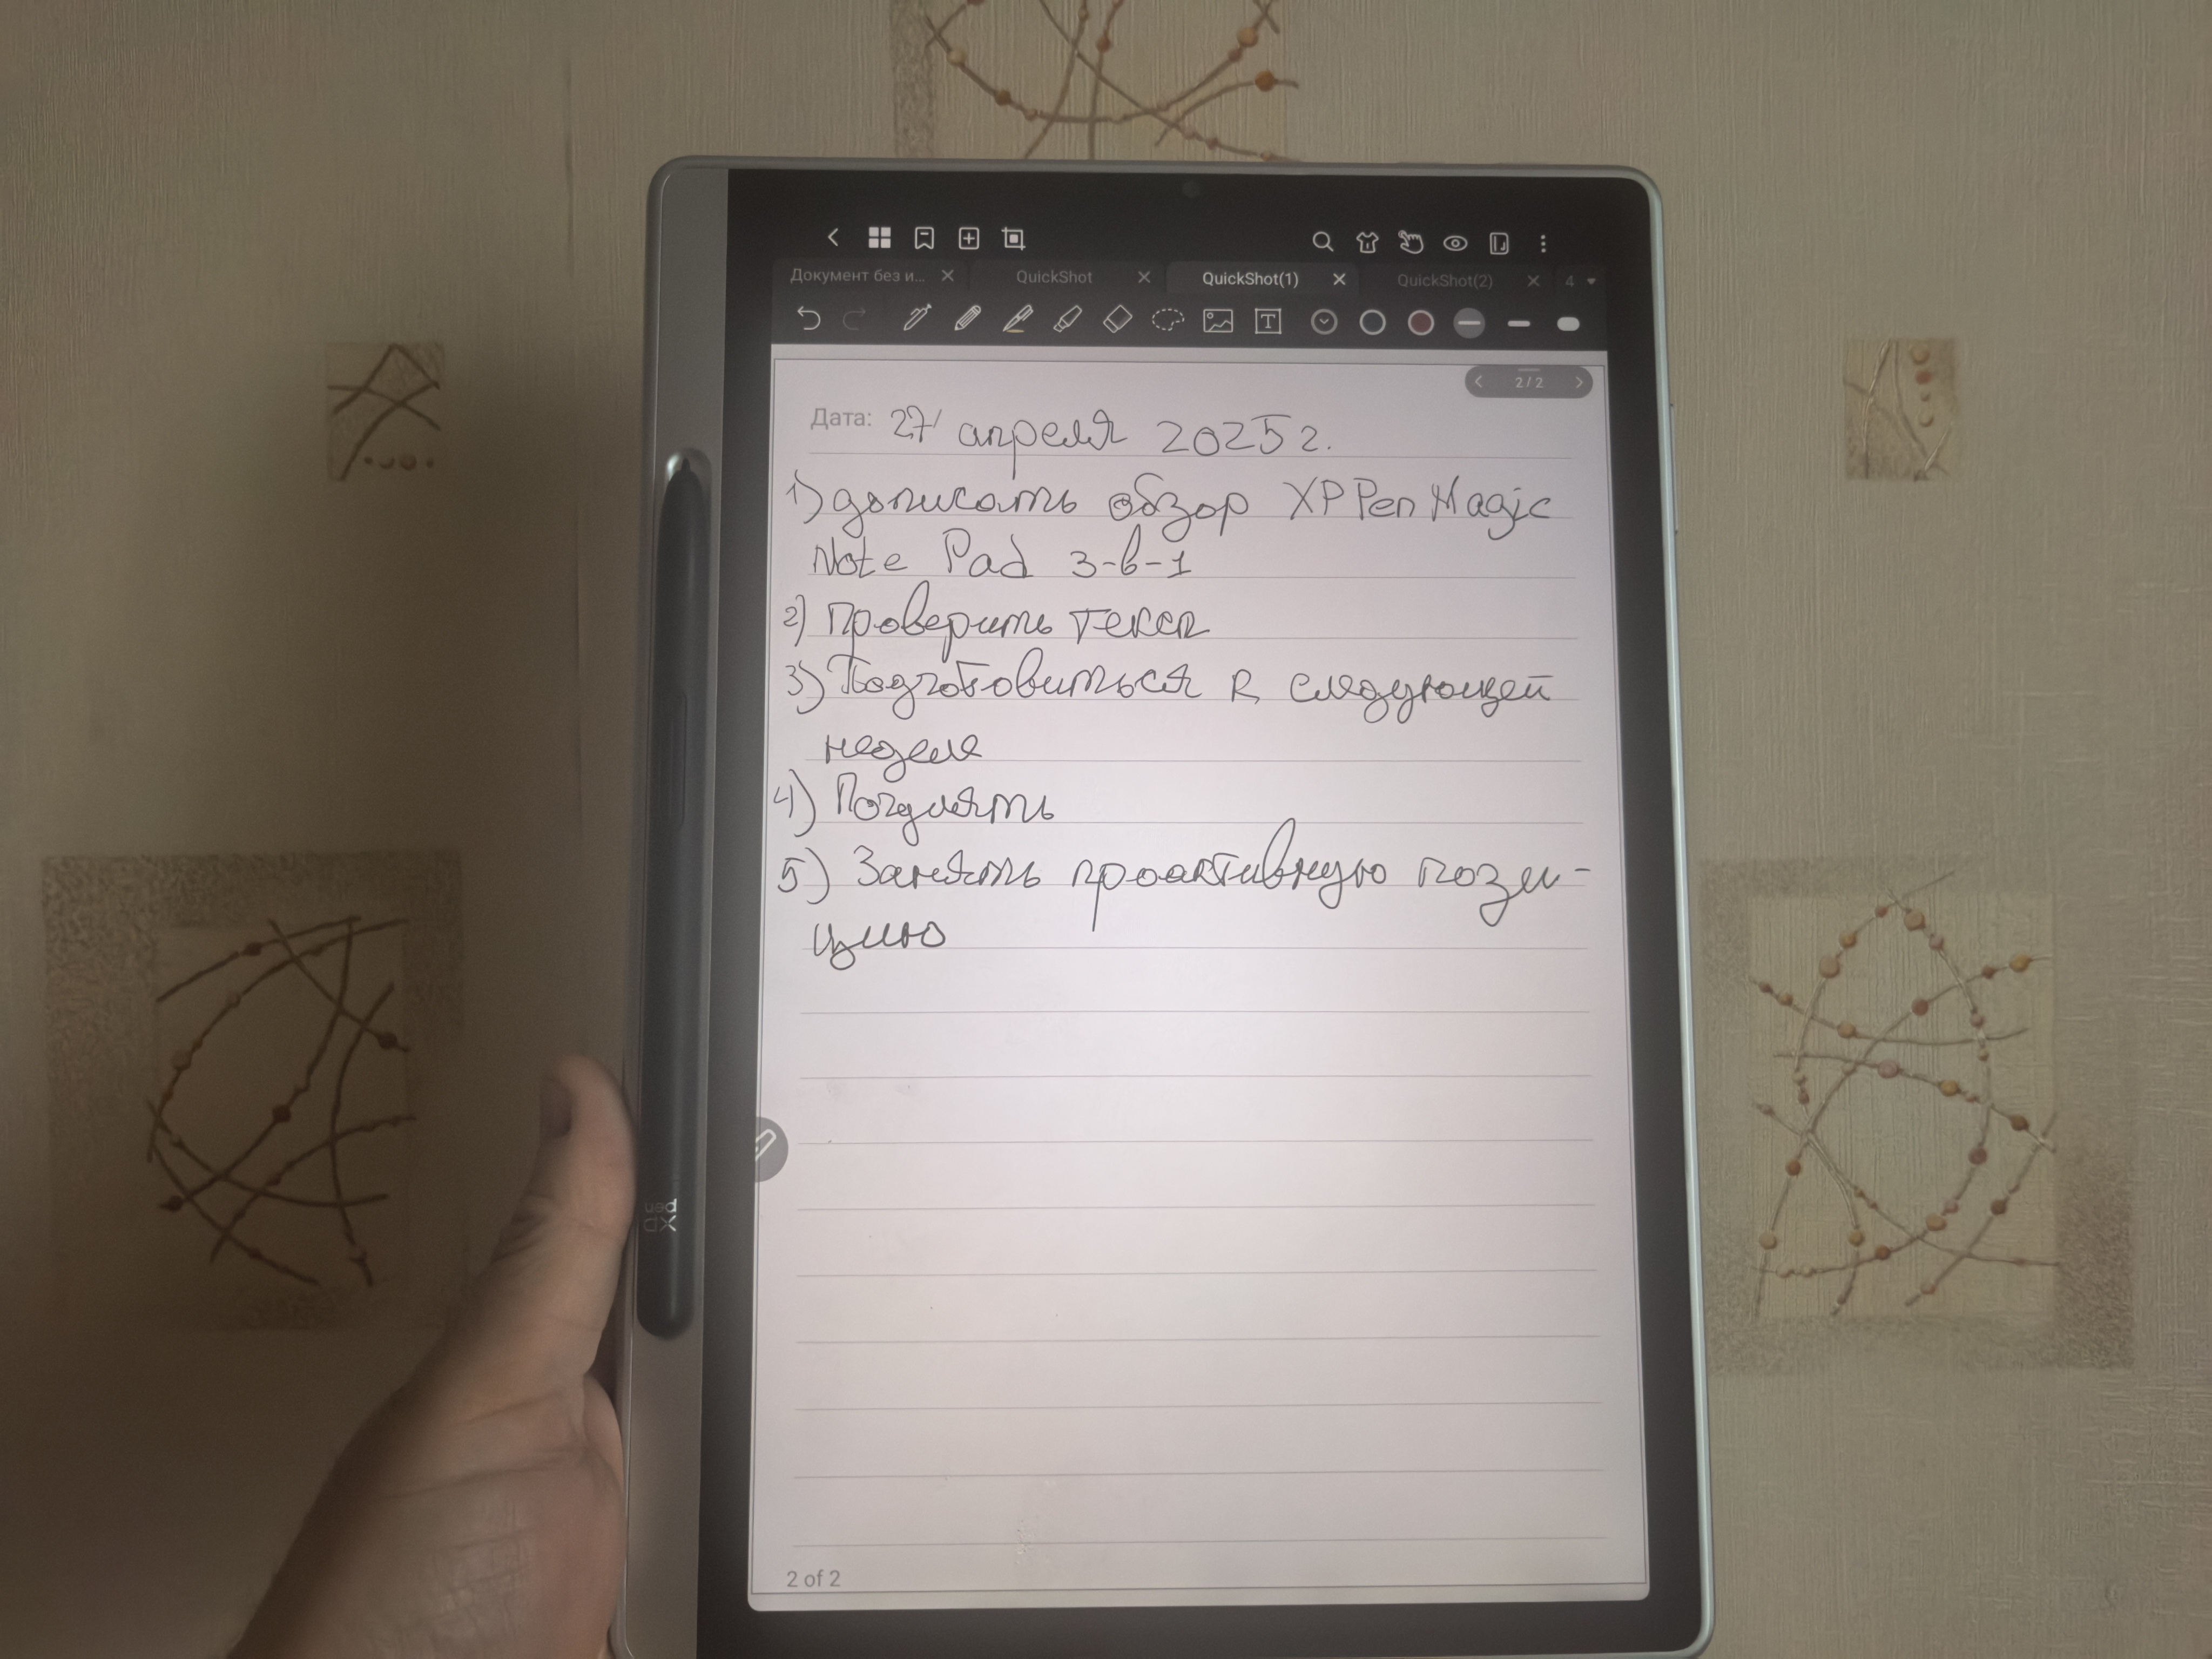 Документ без и...
QuickShot
QuickShot(1)
QuickShot(2)
4
2/2
Дата: 27 апреля 2025 г.
1) дописать обзор XPPen Magic
Note Pad 3-в-1
2) Проверить текст
3) Подготовиться к следующей
неделе
4) Погулять
5) Занять проактивную пози-
цию
2 of 2
xp
pen